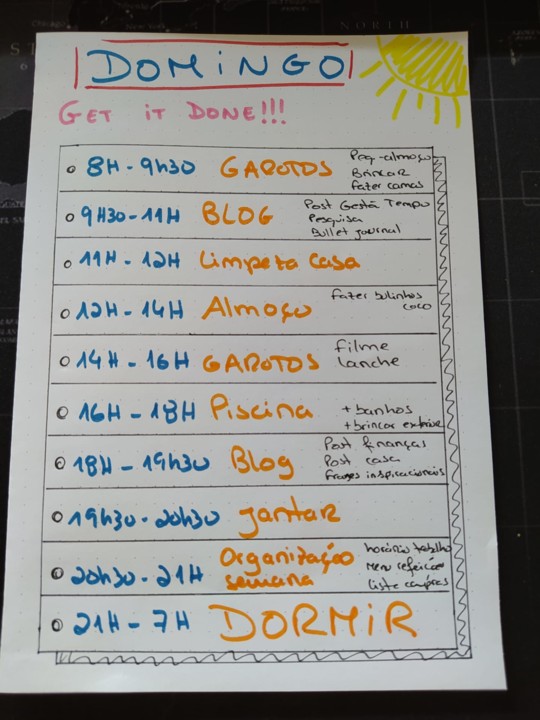 DOMiNGO
GET iT DONE!!!
8H - 9h30 GAROTOS Peq-almoço
Brincar
fazer camas
9H30 - 11H BLOG Post Gestã Tempo
Pesquisa
Bullet journal
11H - 12H Limpeza casa
12H - 14H Almoço fazer bolinhos
coco
14H - 16H GAROTOS filme
Lanche
16H - 18H Piscina + banhos
+ brincar
18H - 19h30 Blog Post finanças
Post casa
frases inspiracionais
19h30 - 20h30 jantar
20h30 - 21H Organização semana horário
Menu refeições
Lista compras
21H - 7H DORMiR